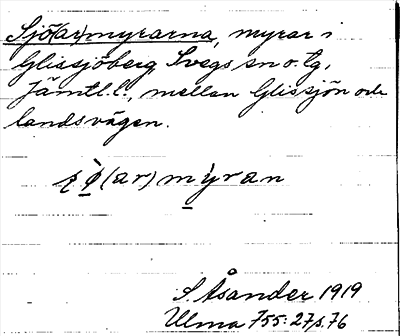 Sjö(ar)myrarna, myrar i
Glissjöberg Svegs sn o. tg,
Jämtl. l., mellan Glissjön och
landsvägen.
(ar)myran
S. Åsander 1919
Ulma 755:27 s. 76